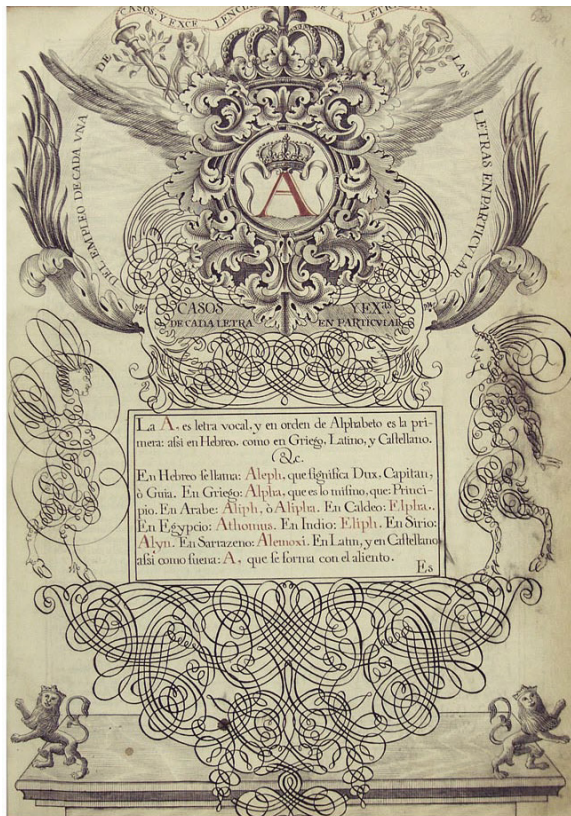 DE CASOS, Y EXCELENCIAS DE LA LETRA A.
DEL EMPLEO DE CADA VNA
DE LAS
LETRAS EN PARTICVLAR
A
CASOS Y EX.as
DE CADA LETRA EN PARTICVLAR
La A, es letra vocal, y en orden de Alphabeto es la pri-
mera: assi en Hebreo, como en Griego, Latino, y Castellano.
&c.
En Hebreo se llama: Aleph, que significa Dux, Capitan,
ò Guia. En Griego: Alpha, que es lo mismo, que: Princi-
pio. En Arabe: Aliph, ò Alipha. En Caldeo: Elpha.
En Egypcio: Athomus. En Indio: Eliph. En Sirio:
Alyn. En Sarrazeno: Alemoxi. En Latin, y en Castellano
assi como suena: A, que se forma con el aliento.
Es